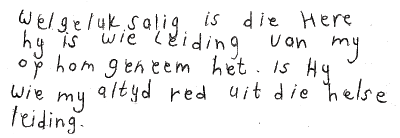 Welgeluksalig is die Here
hy is wie leiding van my
op hom geneem het. Is Hy
wie my altyd red uit die helse
leiding.